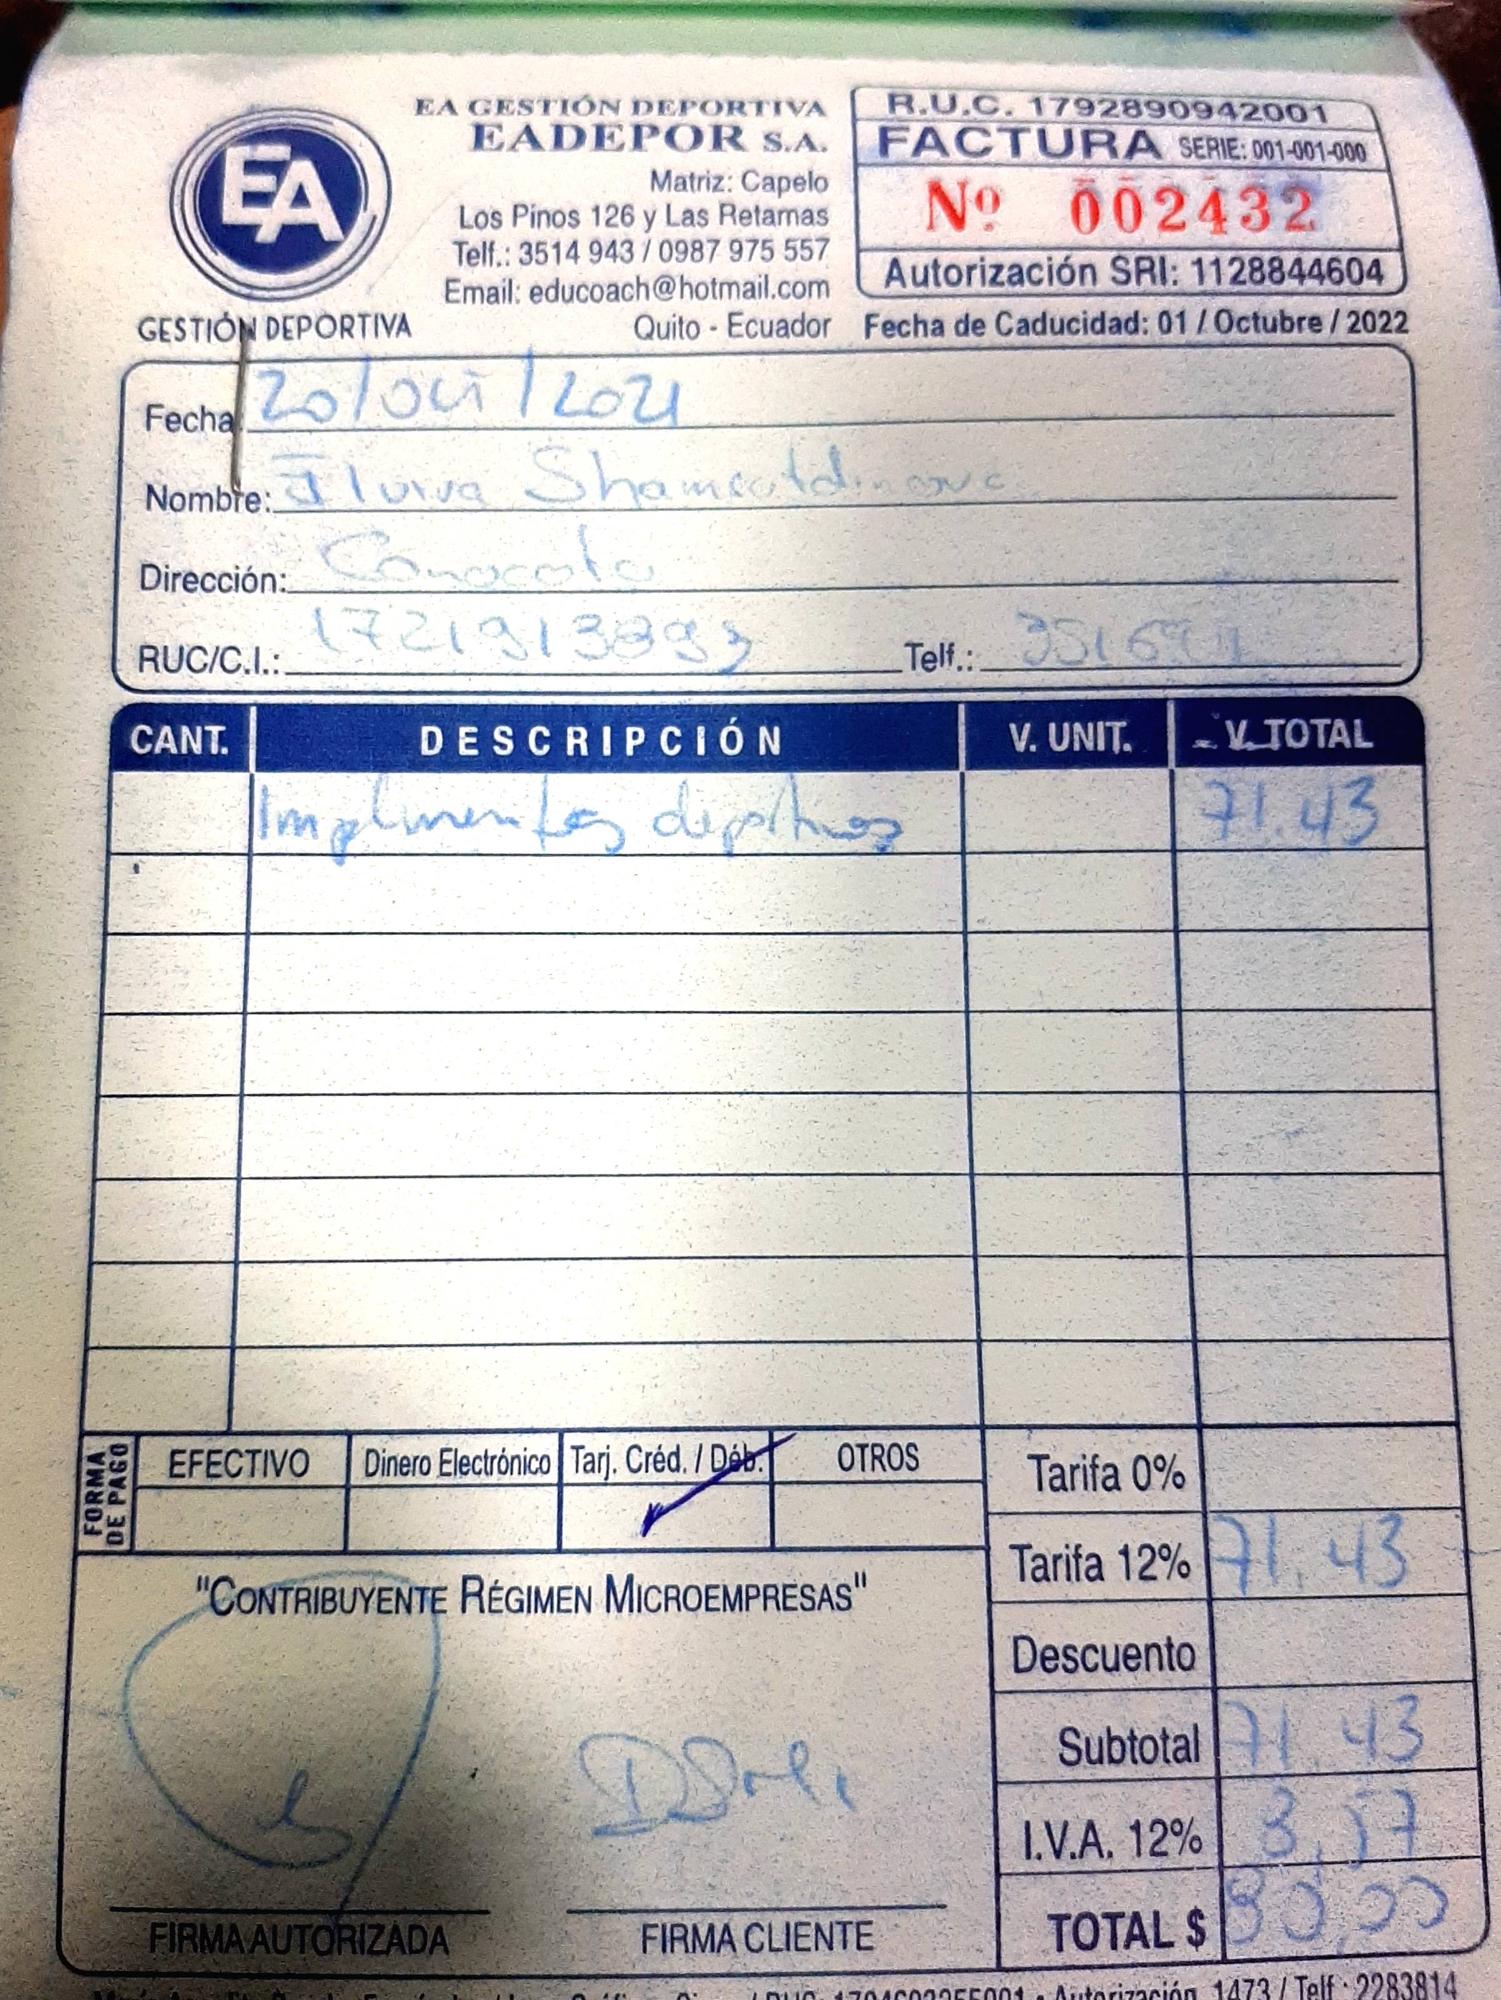 EA GESTIÓN DEPORTIVA
EADEPOR S.A.
Matriz: Capelo
Los Pinos 126 y Las Retamas
Telf.: 3514 943 / 0987 975 557
Email: educoach@hotmail.com
Quito - Ecuador
EA
GESTIÓN DEPORTIVA
R.U.C. 1792890942001
FACTURA SERIE: 001-001-000
Nº 002432
Autorización SRI: 1128844604
Fecha de Caducidad: 01 / Octubre / 2022
Fecha: 20/oct/2021
Nombre:
Dirección: Conocoto
RUC/C.I.: 1721913893 Telf.:
CANT. DESCRIPCIÓN V. UNIT. V. TOTAL
Implimentos deportivos 71.43
FORMA DE PAGO
EFECTIVO Dinero Electrónico Tarj. Créd. / Déb. OTROS
Tarifa 0%
Tarifa 12% 71.43
Descuento
Subtotal 71.43
I.V.A. 12% 8,57
TOTAL $ 80,00
"CONTRIBUYENTE RÉGIMEN MICROEMPRESAS"
FIRMA AUTORIZADA FIRMA CLIENTE
Autorización 1473 / Telf.: 2283814